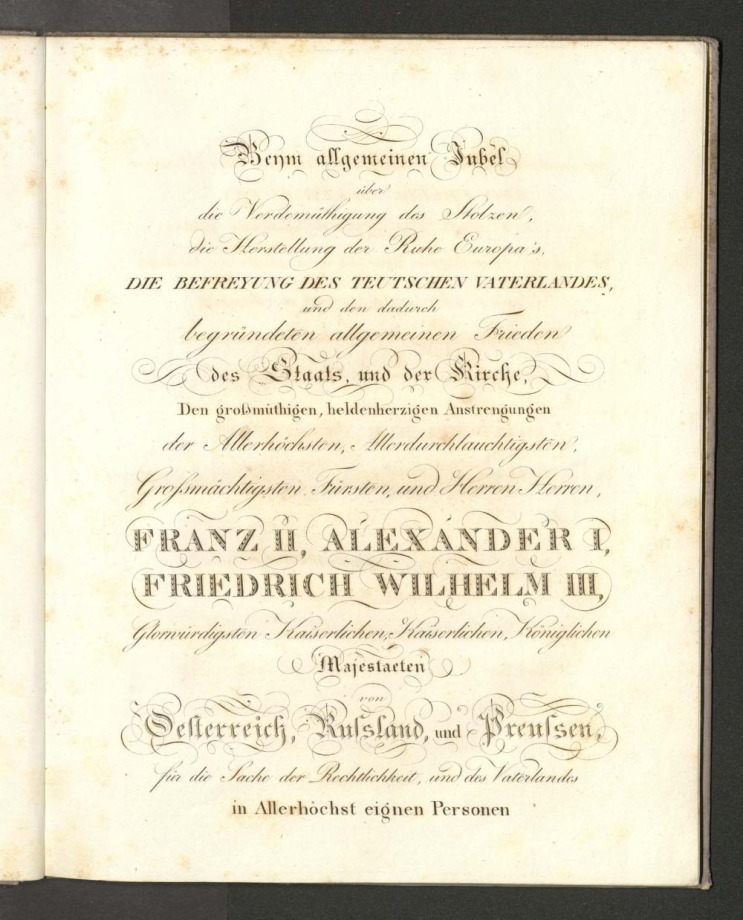 Beym allgemeinen Jubel
über
die Verdemüthigung des Stolzen,
die Herstellung der Ruhe Europa's,
DIE BEFREYUNG DES TEUTSCHEN VATERLANDES,
und den dadurch
begründeten allgemeinen Frieden
des Staats, und der Kirche,
Den großmüthigen, heldenherzigen Anstrengungen
der Allerhöchsten, Allerdurchlauchtigsten,
Großmächtigsten Fürsten, und Herren Herren,
FRANZ II, ALEXANDER I,
FRIEDRICH WILHELM III,
Glorwürdigsten Kaiserlichen, Kaiserlichen, Königlichen
Majestaeten
von
Oesterreich, Russland, und Preussen,
für die Sache der Rechtlichkeit, und des Vaterlandes
in Allerhöchst eignen Personen